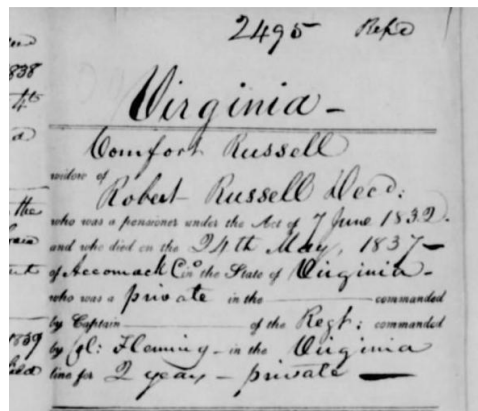 2495 Rejd
Virginia -
Comfort Russell
widow of
Robert Russell Decd:
who was a pensioner under the Act of 7 June 1832.
and who died on the 24th May, 1837 -
of Accomack Co in the State of Virginia -
who was a private in the commanded
by Captain of the Regt: commanded
by Col: Fleming - in the Virginia
line for 2 years - private -
1838
4th
the
1839